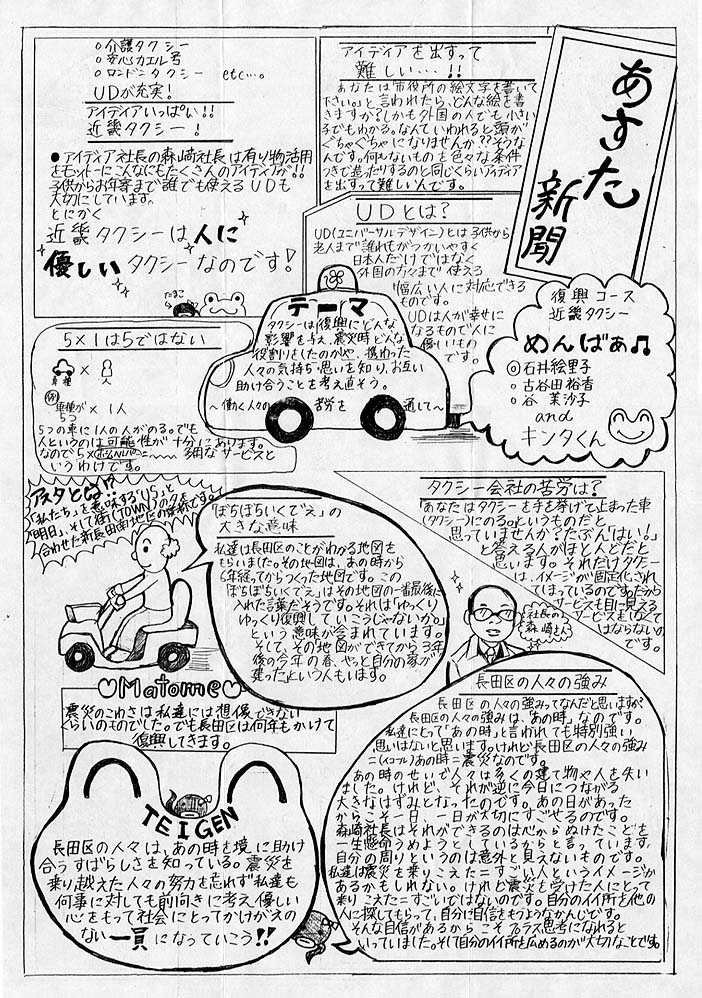 あすた新聞
復興コース
近畿タクシー
めんばぁ♫
◎石井絵里子
○古谷田裕香
○谷 茉沙子
and
キンタくん
アイディアを出すって
難しい…!!
あなたは「市役所の絵文字を書いて
下さい。」と言われたら、どんな絵を書
きますか?しかも外国の人でも小さい
子でもわかる。なんていわれると頭が
ぐちゃぐちゃになりませんか??そうな
んです。何もないものを色々な条件
つきで造ったりするのと同じくらいアイディア
を出すって難しい人です。
○介護タクシー
○安心カエル号
○ロンドンタクシー etc…。
UDが充実!
アイディアいっぱい!!
近畿タクシー!
●アイディア社長の森崎社長は有り物活用
をモットーにこんなにもたくさんのアイディアが!!
子供からお年寄まで誰でも使えるUDも
大切にしています。
とにかく
近畿タクシーは人に
優しいタクシーなのです!
たまご
UDとは?
UD(ユニバーサルデザイン)とは子供から
老人まで誰もがつかいやすく
日本人だけではなく
外国の方々まで使える
幅広い人に対応できる
ものです。
UDは人が幸せに
なるもので人に
優しいもの
です。
テーマ
タクシーは復興にどんな
影響を与え、震災時どんな
役割りをしたのかや、携わった
人々の気持ち・思いを知り、お互い
助け合うことを考え直そう。
～働く人々の苦労を通して～
5×1は5ではない
車種 × 人
例 車種が5つ × 1人
5つの車に1人の人がのる。でも
人というのは可能性が十分にあります。
なので5×
細なサービスと
いうわけです。
アスタとは!?
「私たち」を意味する「US」と
「明日」、そして街(TOWN)のタを
合わせた新長田南地区の愛称です。
「ぼちぼちいくでぇ」の
大きな意味
私達は長田区のことがわかる地図を
もらいました。その地図は、あの時から
6年経ってからつくった地図です。この
「ぼちぼちいくでえ」はその地図の一番最後に
入れた言葉だそうです。それは「ゆっくり
ゆっくり復興していこうじゃないか。」
という意味が含まれています。
そして、その地図ができてから3年
後の今年の春、やっと自分の家が
建ったという人もいます。
タクシー会社の苦労は?
「あなたはタクシーを手を挙げて止まった車
(タクシー)にのる。というものだと
思っていませんか?たぶん「はい!」
と答える人がほとんどだと
思います。それだけタクシー
は、イメージが固定化され
てしまっているのです。だから
サービスも目に見える
サービスをしなくて
はならないの
です。
社長の
森崎さん
♡Matome♡
震災のこわさは私達には想像できない
くらいのものでした。でも長田区は何年もかけて
復興してきます。
長田区の人々の強み
長田区の人々の強みってなんだと思いますか?
長田区の人々の強みは、「あの時」なのです。
私達にとって「あの時」と言われても特別強い
思いはないと思います。けれど長田区の人々の強み
=(イコール)あの時=震災なのです。
あの時のせいで人々は多くの建て物や人を失い
ました。けれど、それが逆に今日につながる
大きなはずみとなったのです。あの日があった
からこそ一日、一日が大切にすごせるのです。
森崎社長はそれができるのは心からぬけたことを
一生懸命うめようとしているからと言っています。
自分の周りというのは意外と見えないものです。
私達は震災を乗りこえた=すごい人というイメージが
あるかもしれない。けれど震災を受けた人にとって
乗りこえた=すごいではないのです。自分のイイ所を他の
人に探してもらって、自分に自信をもつようなかんじです。
そんな自信があるからこそプラス思考になれると
いっていました。そして自分のイイ所を広めるのが大切なことです。
TEIGEN
長田区の人々は、あの時を境に助け
合うすばらしさを知っている。震災を
乗り越えた人々の努力を忘れず私達も
何事に対しても前向きに考え、優しい
心をもって社会にとってかけがえの
ない一員になっていこう!!